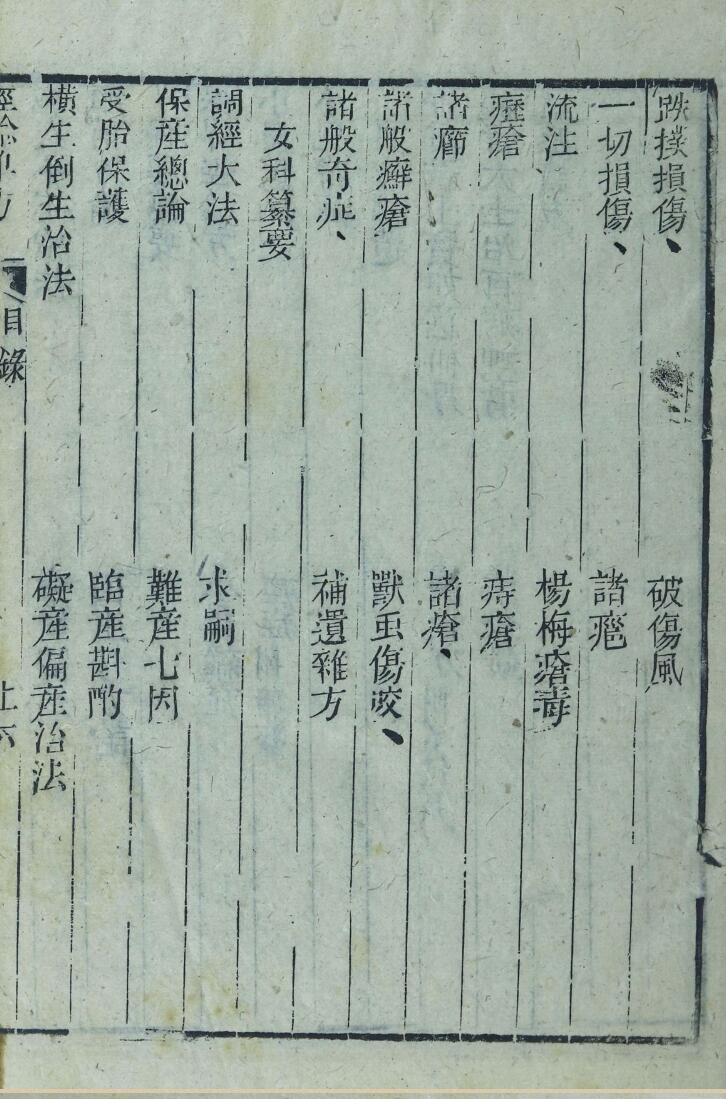 跌撲損傷、 破傷風
一切損傷、 諸
流注 楊梅瘡毒
瘡 痔瘡
諸 諸瘡、
諸般癬瘡 獸虫傷咬、
諸般奇症、 補遺雜方
女科纂要
調經大法 求嗣
保産總論 難産七因
受胎保護 臨産斟酌
横生倒生治法 礙産偏産治法
目錄